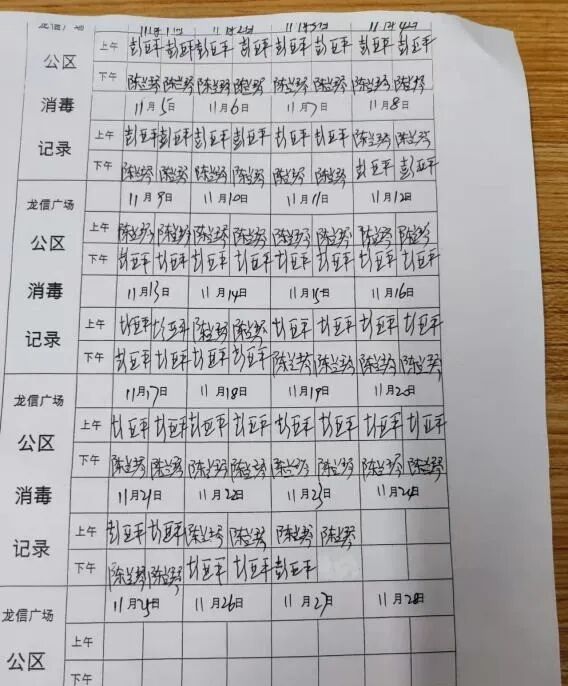 龙信广场 11月1日 11月2日 11月3日 11月4日
上午 彭亚平 彭亚平 彭亚平 彭亚平 彭亚平 彭亚平 彭亚平 彭亚平
公区
下午 陈兰琴 陈兰琴 陈兰琴 陈兰琴 陈兰琴 陈兰琴 陈兰琴 陈兰琴
消毒 11月5日 11月6日 11月7日 11月8日
上午 彭亚平 彭亚平 彭亚平 彭亚平 彭亚平 彭亚平 陈兰琴 陈兰琴
记录
下午 陈兰琴 陈兰琴 陈兰琴 陈兰琴 陈兰琴 陈兰琴 彭亚平 彭亚平
龙信广场 11月9日 11月10日 11月11日 11月12日
上午 陈兰琴 陈兰琴 陈兰琴 陈兰琴 陈兰琴 陈兰琴 陈兰琴 陈兰琴
公区
下午 彭亚平 彭亚平 彭亚平 彭亚平 彭亚平 彭亚平 彭亚平 彭亚平
消毒 11月13日 11月14日 11月15日 11月16日
上午 彭亚平 彭亚平 陈兰琴 陈兰琴 彭亚平 彭亚平 彭亚平 彭亚平
记录
下午 彭亚平 彭亚平 彭亚平 彭亚平 陈兰琴 陈兰琴 陈兰琴 陈兰琴
龙信广场 11月17日 11月18日 11月19日 11月20日
上午 彭亚平 彭亚平 彭亚平 彭亚平 彭亚平 彭亚平 彭亚平 彭亚平
公区
下午 陈兰琴 陈兰琴 陈兰琴 陈兰琴 陈兰琴 陈兰琴 陈兰琴 陈兰琴
消毒 11月21日 11月22日 11月23日 11月24日
上午 彭亚平 彭亚平 陈兰琴 陈兰琴 陈兰琴 陈兰琴
记录
下午 陈兰琴 陈兰琴 彭亚平 彭亚平 彭亚平
龙信广场 11月25日 11月26日 11月27日 11月28日
上午
公区
下午